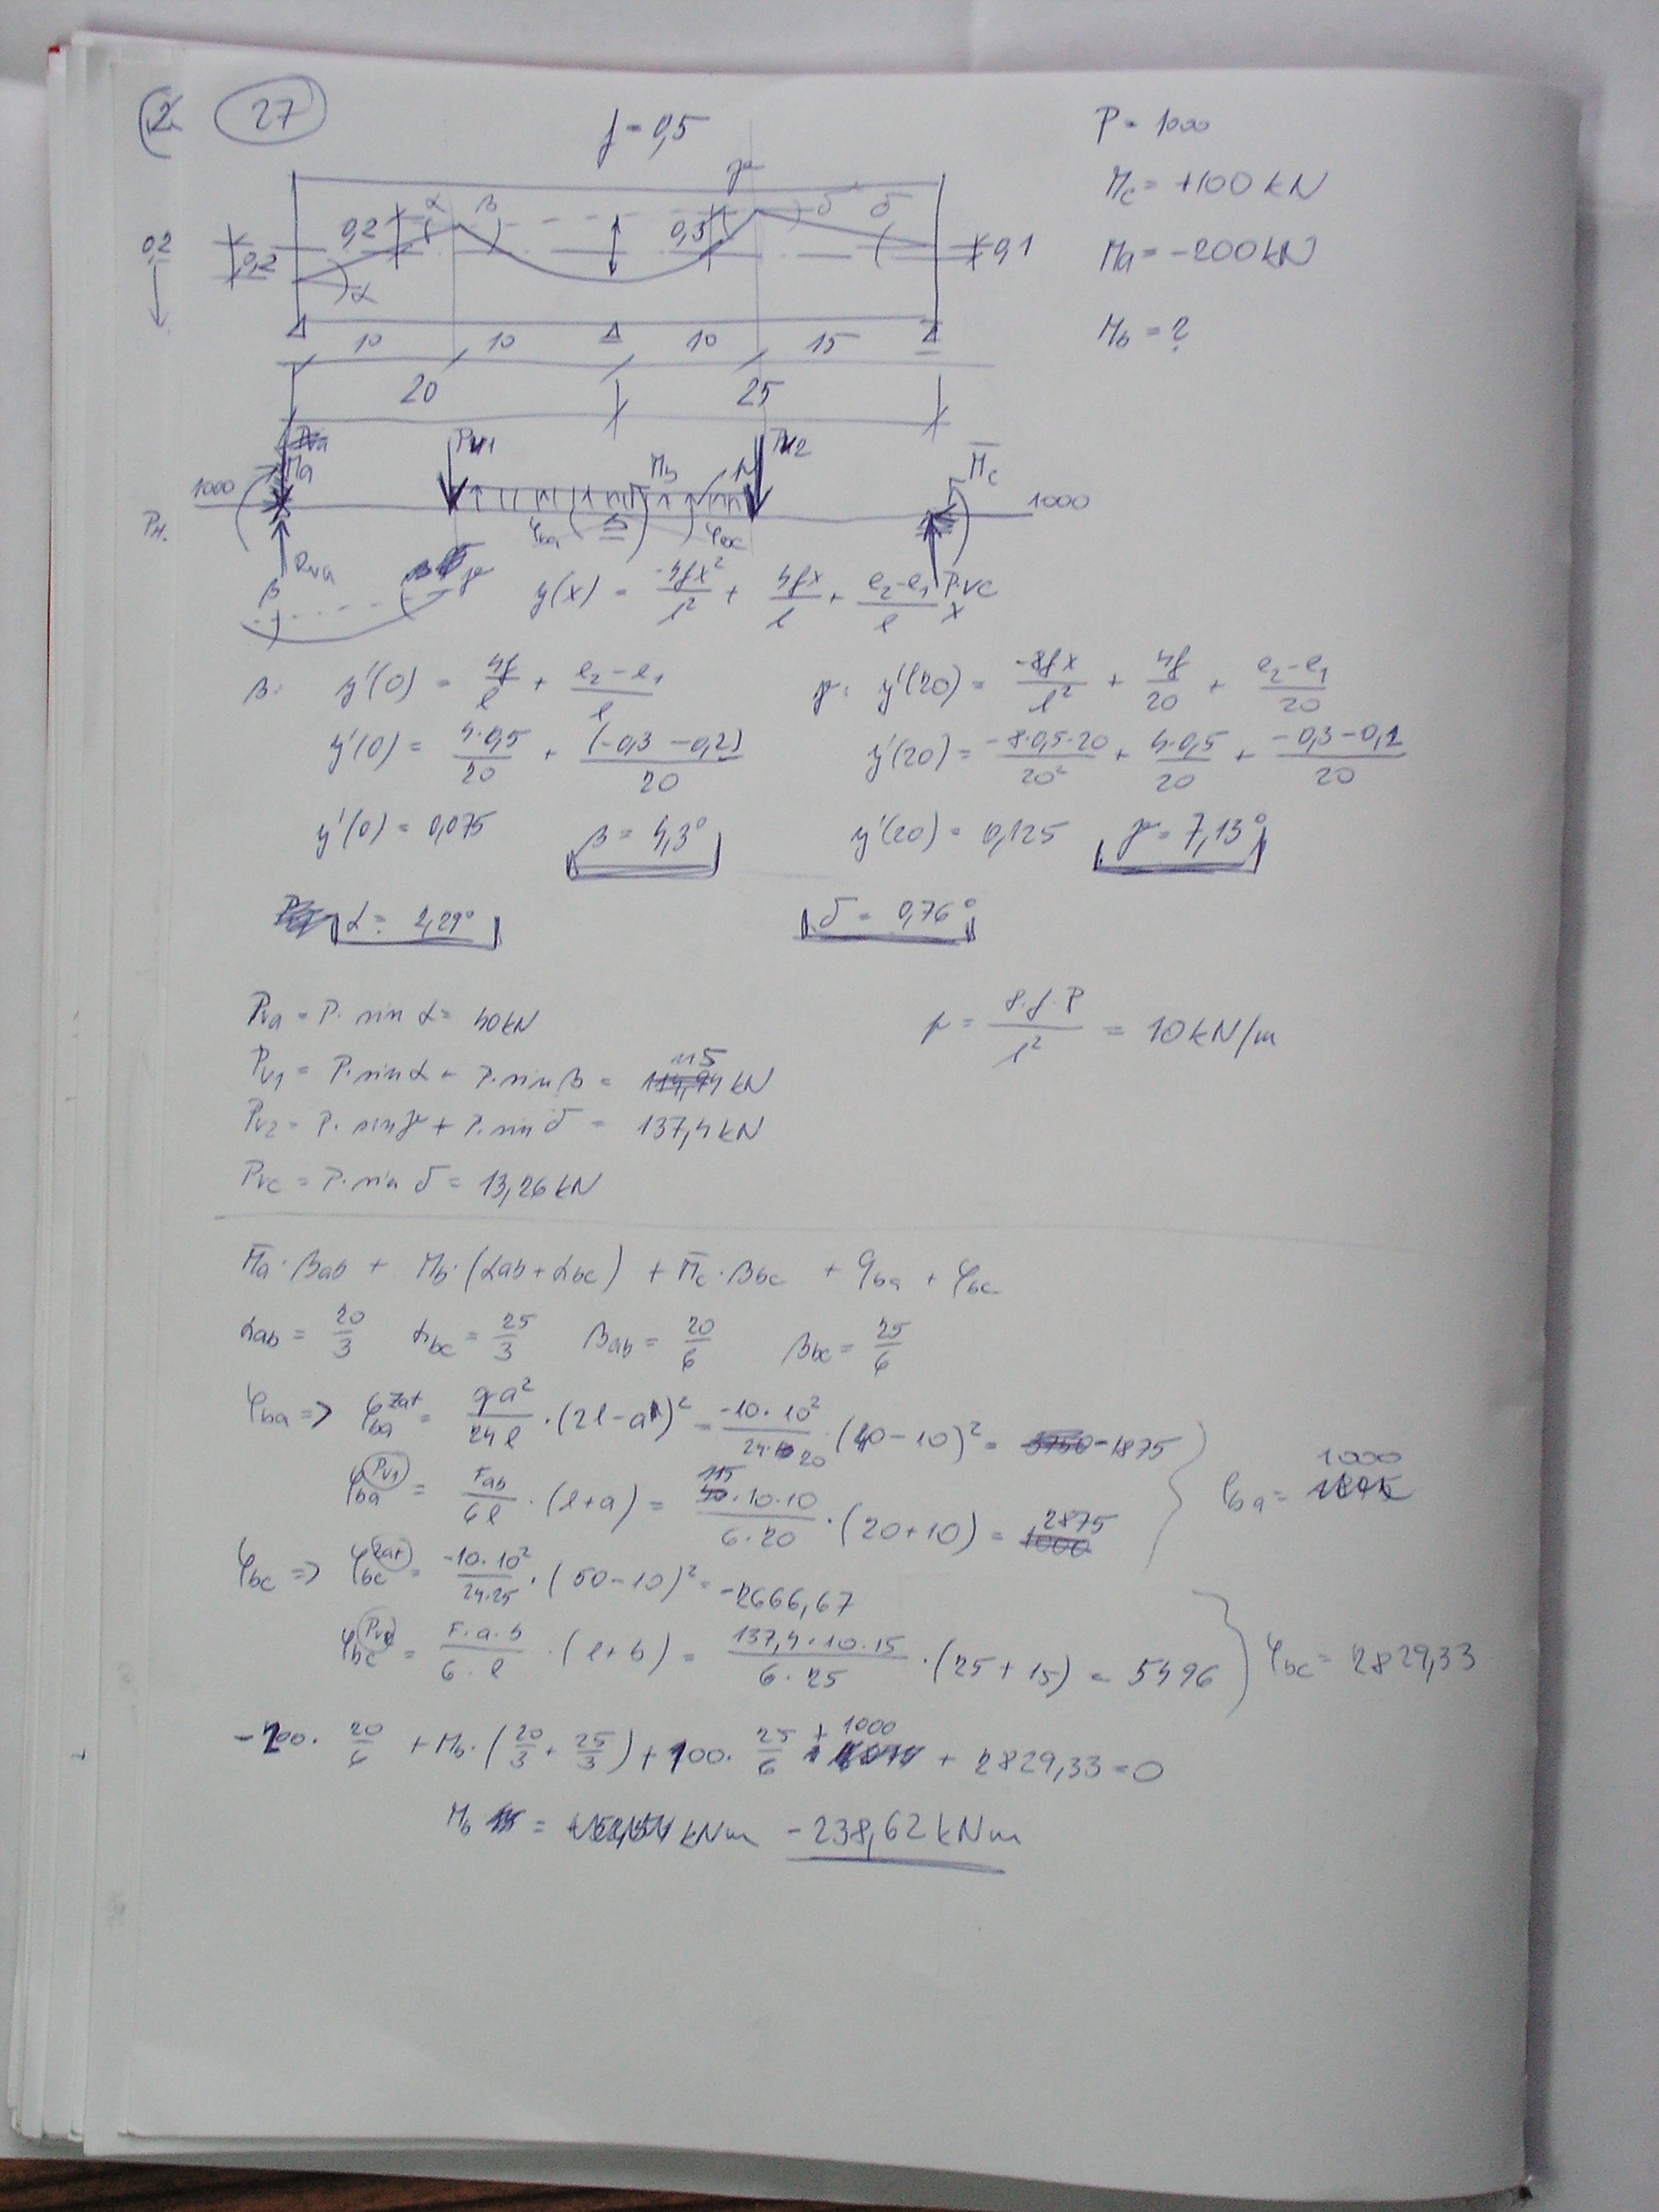 2. 27
f = 0,5
P = 1000
Mc = +100 kN
Ma = -200 kN
Mb = ?
0,2 0,2 0,2 α β 0,3 γ δ δ 0,1
α
10 10 10 15
20 25
Ma Pv1 Mb p Pv2 M̄c
1000 1000
φba φbc
Rva Pvc
β γ
y(x) = -4fx²/l² + 4fx/l + e₂-e₁/l x
β: y'(0) = 4f/l + e₂-e₁/l γ: y'(20) = -8fx/l² + 4f/20 + e₂-e₁/20
y'(0) = 4·0,5/20 + (-0,3-0,2)/20 y'(20) = -8·0,5·20/20² + 4·0,5/20 + -0,3-0,2/20
y'(0) = 0,075 β = 4,3° y'(20) = 0,125 γ = 7,13°
α = 2,29° δ = 0,76°
Pva = P·sin α = 40 kN p = 8·f·P/l² = 10 kN/m
Pv1 = P·sin α + P·sin β = 115 kN
Pv2 = P·sin γ + P·sin δ = 137,4 kN
Pvc = P·sin δ = 13,26 kN
M̄a·βab + Mb·(αab + αbc) + M̄c·βbc + φba + φbc
αab = 20/3 αbc = 25/3 βab = 20/6 βbc = 25/6
φba => φba zat = qa²/24l·(2l-a)² = -10·10²/24·20·(40-10)² = -1875
φba Pv1 = Fab/6l·(l+a) = 115·10·10/6·20·(20+10) = 2875 φba = 1000
φbc => φbc zat = -10·10²/24·25·(50-10)² = -2666,67
φbc Pv2 = F·a·b/6·l·(l+b) = 137,4·10·15/6·25·(25+15) = 5496 φbc = 2829,33
-200·20/6 + Mb·(20/3 + 25/3) + 100·25/6 + 1000 + 2829,33 = 0
Mb = kNm -238,62 kNm